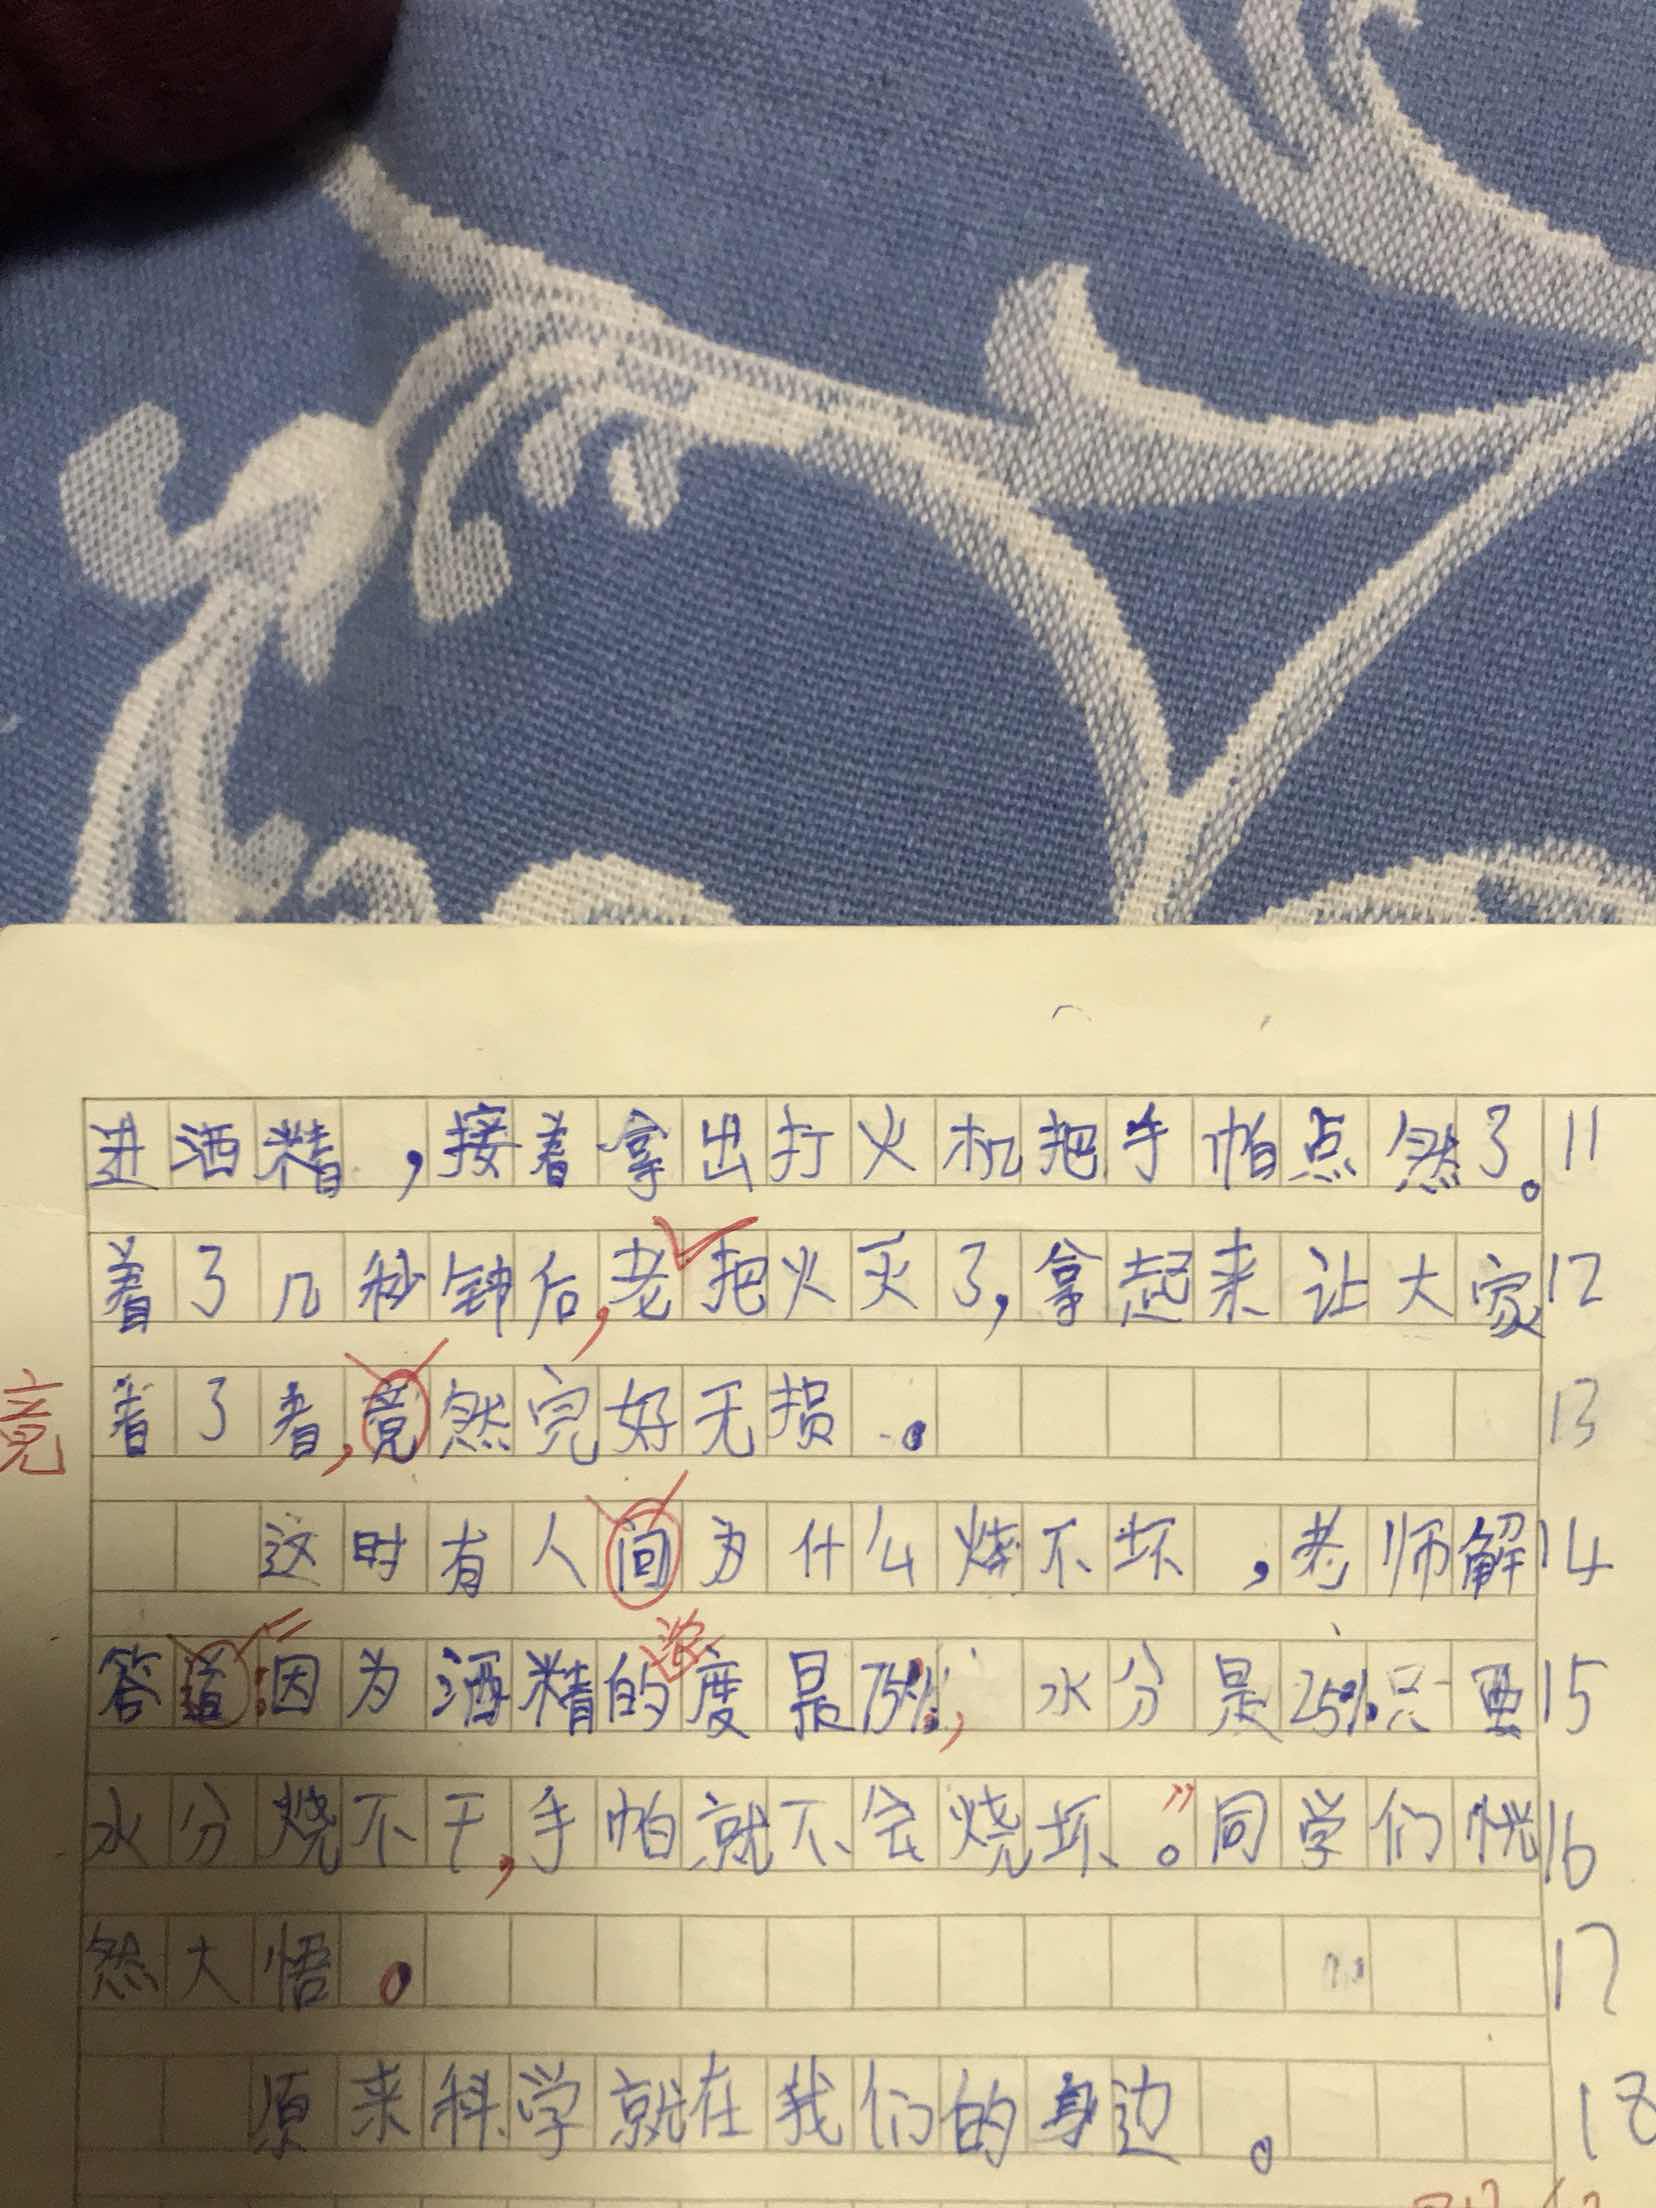 进洒精，接着拿出打火机把手帕点然了。 11
着了几秒钟后，老把火灭了，拿起来让大家 12
竟 着了看，竟然完好无损。 13
这时有人问为什么烧不坏，老师解 14
答道：“因为酒精的浓度是75%，水分是25%只要 15
水分烧不干，手帕就不会烧坏。”同学们恍 16
然大悟。 17
原来科学就在我们的身边。 18